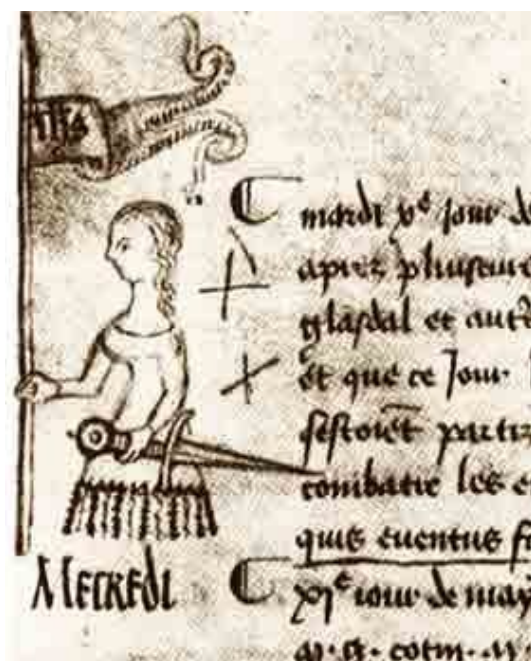 IHS
mardi xe jour de
aprez pluiseurs
glasdal et autr
et que ce Jour
sestoiēt partir
combatre les e
quis euentus f
MECREDI
xie iour de may